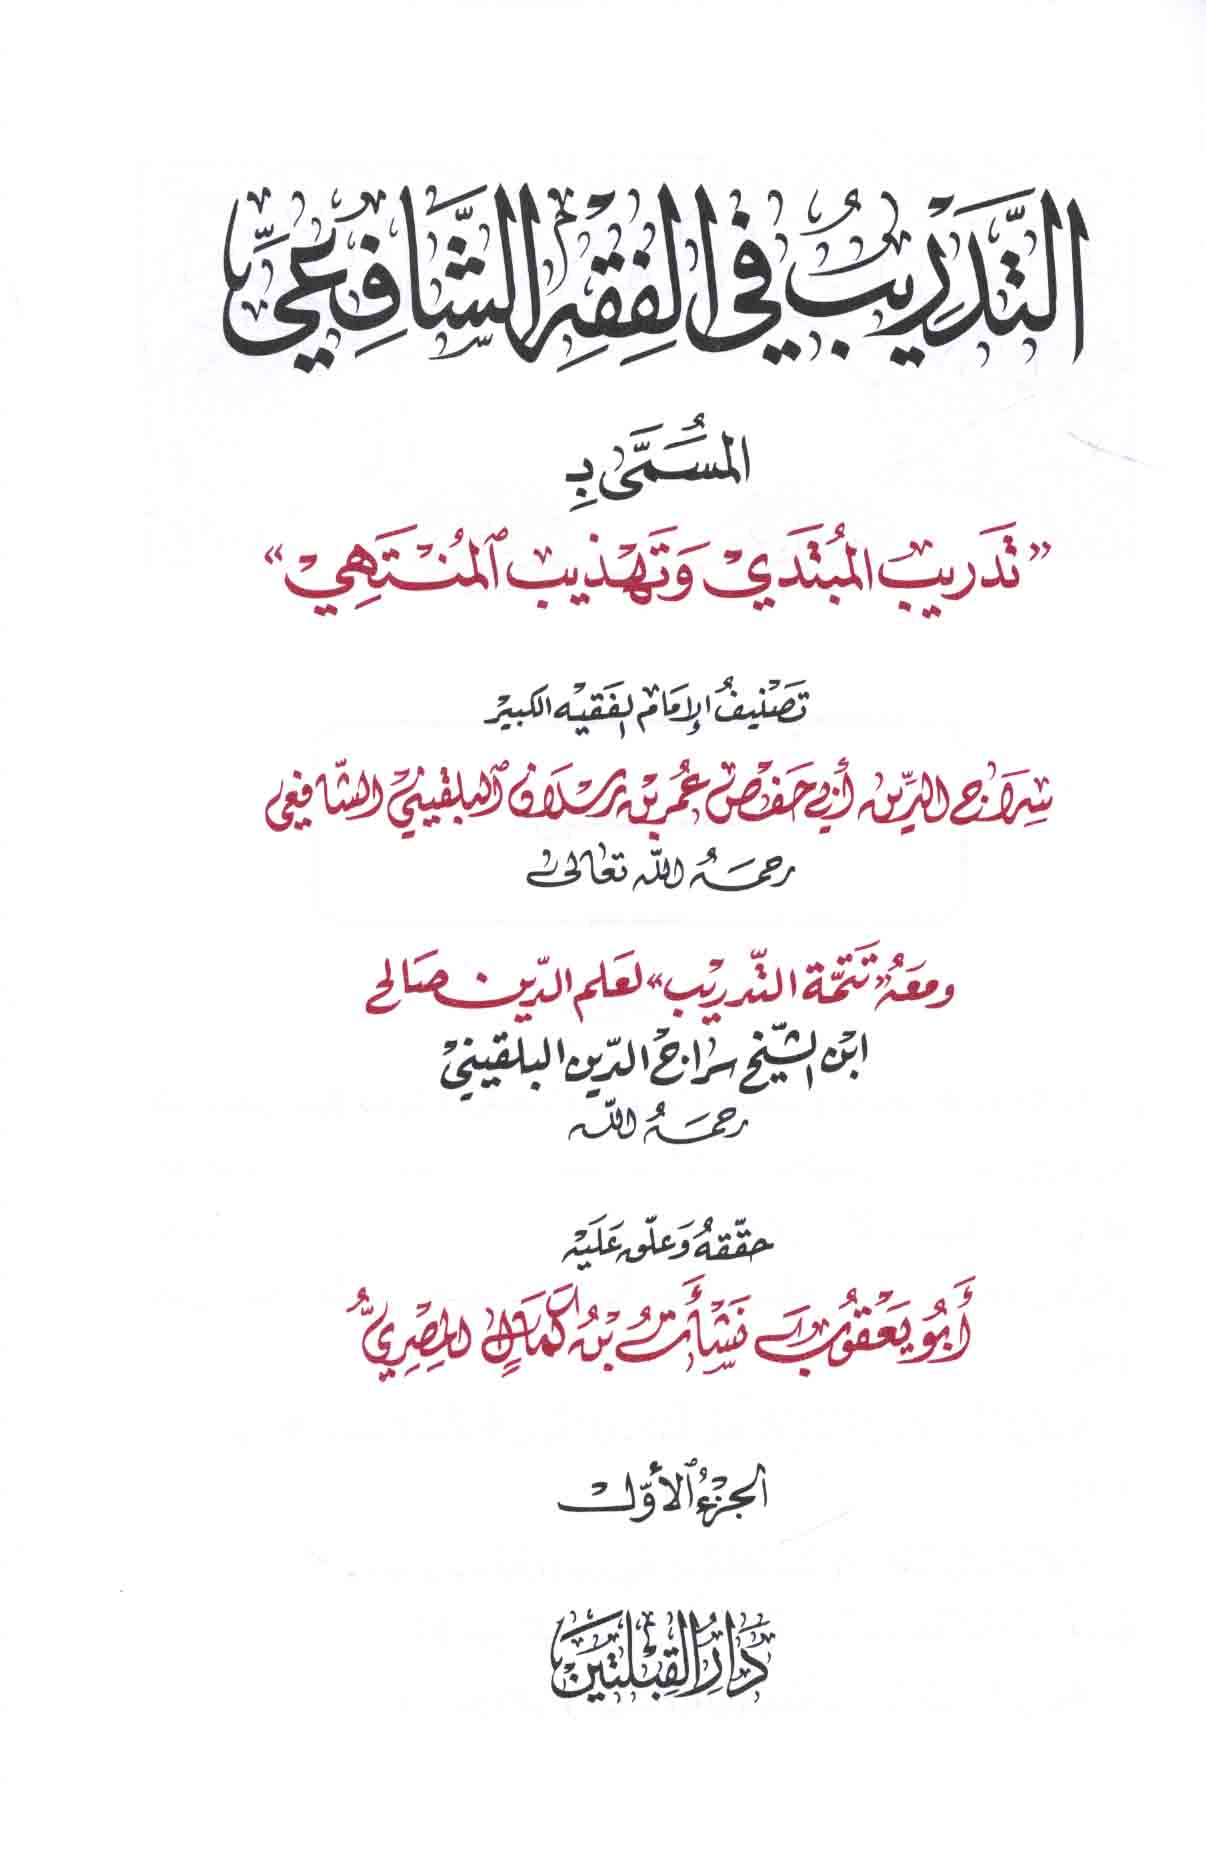 التَّدْرِيبُ فِي الفِقْهِ الشَّافِعِيِّ
المُسَمَّى بِـ
«تَدْرِيبَ المُبْتَدِي وَتَهْذِيبَ المُنْتَهِي»
تَصْنِيفُ الإِمَامِ الفَقِيهِ الكَبِيرِ
سِرَاجِ الدِّينِ أَبِي حَفْصٍ عُمَرَ بْنِ رَسْلَانَ البُلْقِينِيِّ الشَّافِعِيِّ
رحمهُ الله تعالى
ومعَهُ «تَتِمَّة التَّدْرِيب» لعَلَم الدِّين صَالح
ابْن الشَّيْخ سِرَاج الدِّين البلقيني
رحمهُ الله
حقَّقهُ وَعلَّق عَلَيْهِ
أَبُو يَعْقُوبَ نَشْأَتُ بْنُ كَمَالٍ المِصْرِيُّ
الجزءُ الأَوَّل
دَارُ القِبْلَتَيْن